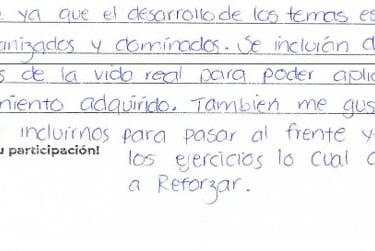 ya que el desarrollo de los temas es
anizados y dominados. Se incluián d
s de la vida real para poder aplic
miento adquirido. Tambien me gus
incluirnos para pasar al frente y
u participación!
los ejercicios lo cual c
a Reforzar.